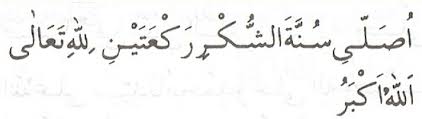 اُصَلِّي سُنَّةَ الشُّكْرِ رَكْعَتَيْنِ لِلّٰهِ تَعَالٰى
اَللّٰهُ اَكْبَرُ